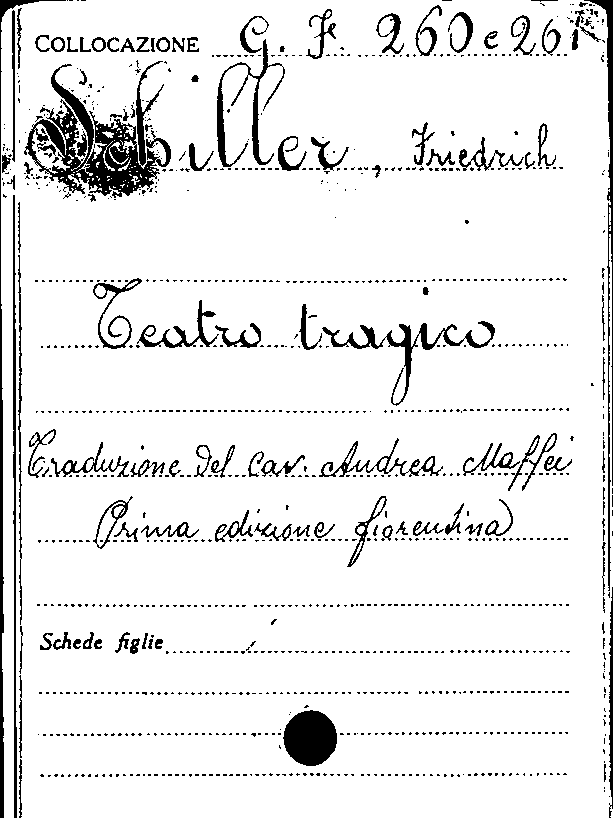 COLLOCAZIONE G. F. 260 e 261
Schiller, Friedrich
Teatro tragico
Traduzione del Cav. Andrea Maffei
Prima edizione fiorentina
Schede figlie